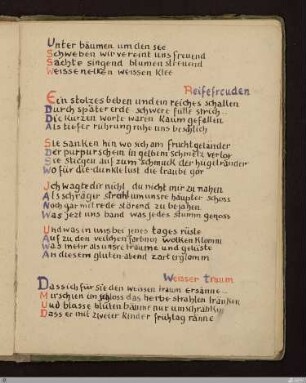 Unter bäumen um den see
Schweben wir vereint uns freuend
Sachte singend blumen streuend
Weisse nelken weissen klee
Reifefreuden
Ein stolzes beben und ein reiches schallen
Durch später erde schwere fülle strich..
Die kurzen worte waren kaum gefallen
Als tiefer rührung ruhe uns beschlich
Sie sanken hin wo sich am fruchtgeländer
Der purpurschein im gelben schmelz verlor
Sie stiegen auf zum schmuck der hügelränder
Wo für die dunkle lust die traube gor
Ich wagte dir nicht du nicht mir zu nahen
Als schräger strahl um unsre häupter schoss
Noch gar mit rede störend zu bejahen
Was jezt uns band was jedes stumm genoss
Und was in uns bei jenes tages rüste
Auf zu den veilchenfarbnen wolken klomm
Was mehr als unsre träume und gelüste
An diesem gluten abend zart erglomm
Weisser traum
Dass ich für sie den weissen traum ersänne..
Mir schien im schloss das herbe strahlen tränken
Und blasse blütenbäume nur umschränken
Dass er mit zweier kinder frühtag ränne